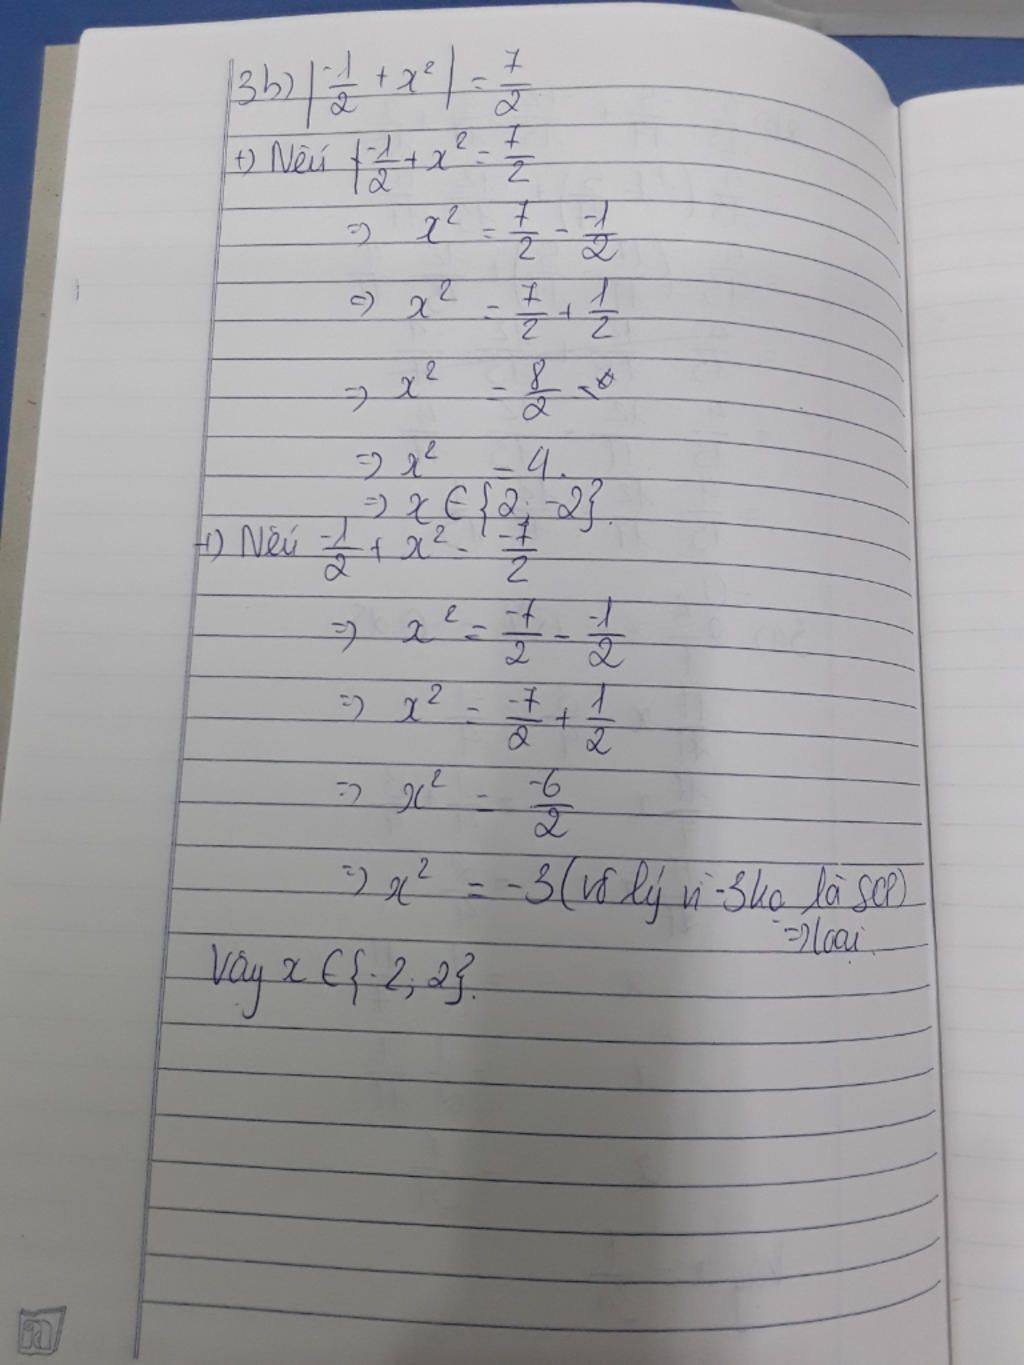 3b) |-1/2 + x² | = 7/2
+) Nếu -1/2 + x² = 7/2
=> x² = 7/2 - -1/2
=> x² = 7/2 + 1/2
=> x² = 8/2
=> x² = 4.
=> x ∈ {2; -2}.
+) Nếu -1/2 + x² = -7/2
=> x² = -7/2 - -1/2
=> x² = -7/2 + 1/2
=> x² = -6/2
=> x² = -3 (vô lý vì -3 ko là SCP)
=> loại.
Vậy x ∈ {-2; 2}.